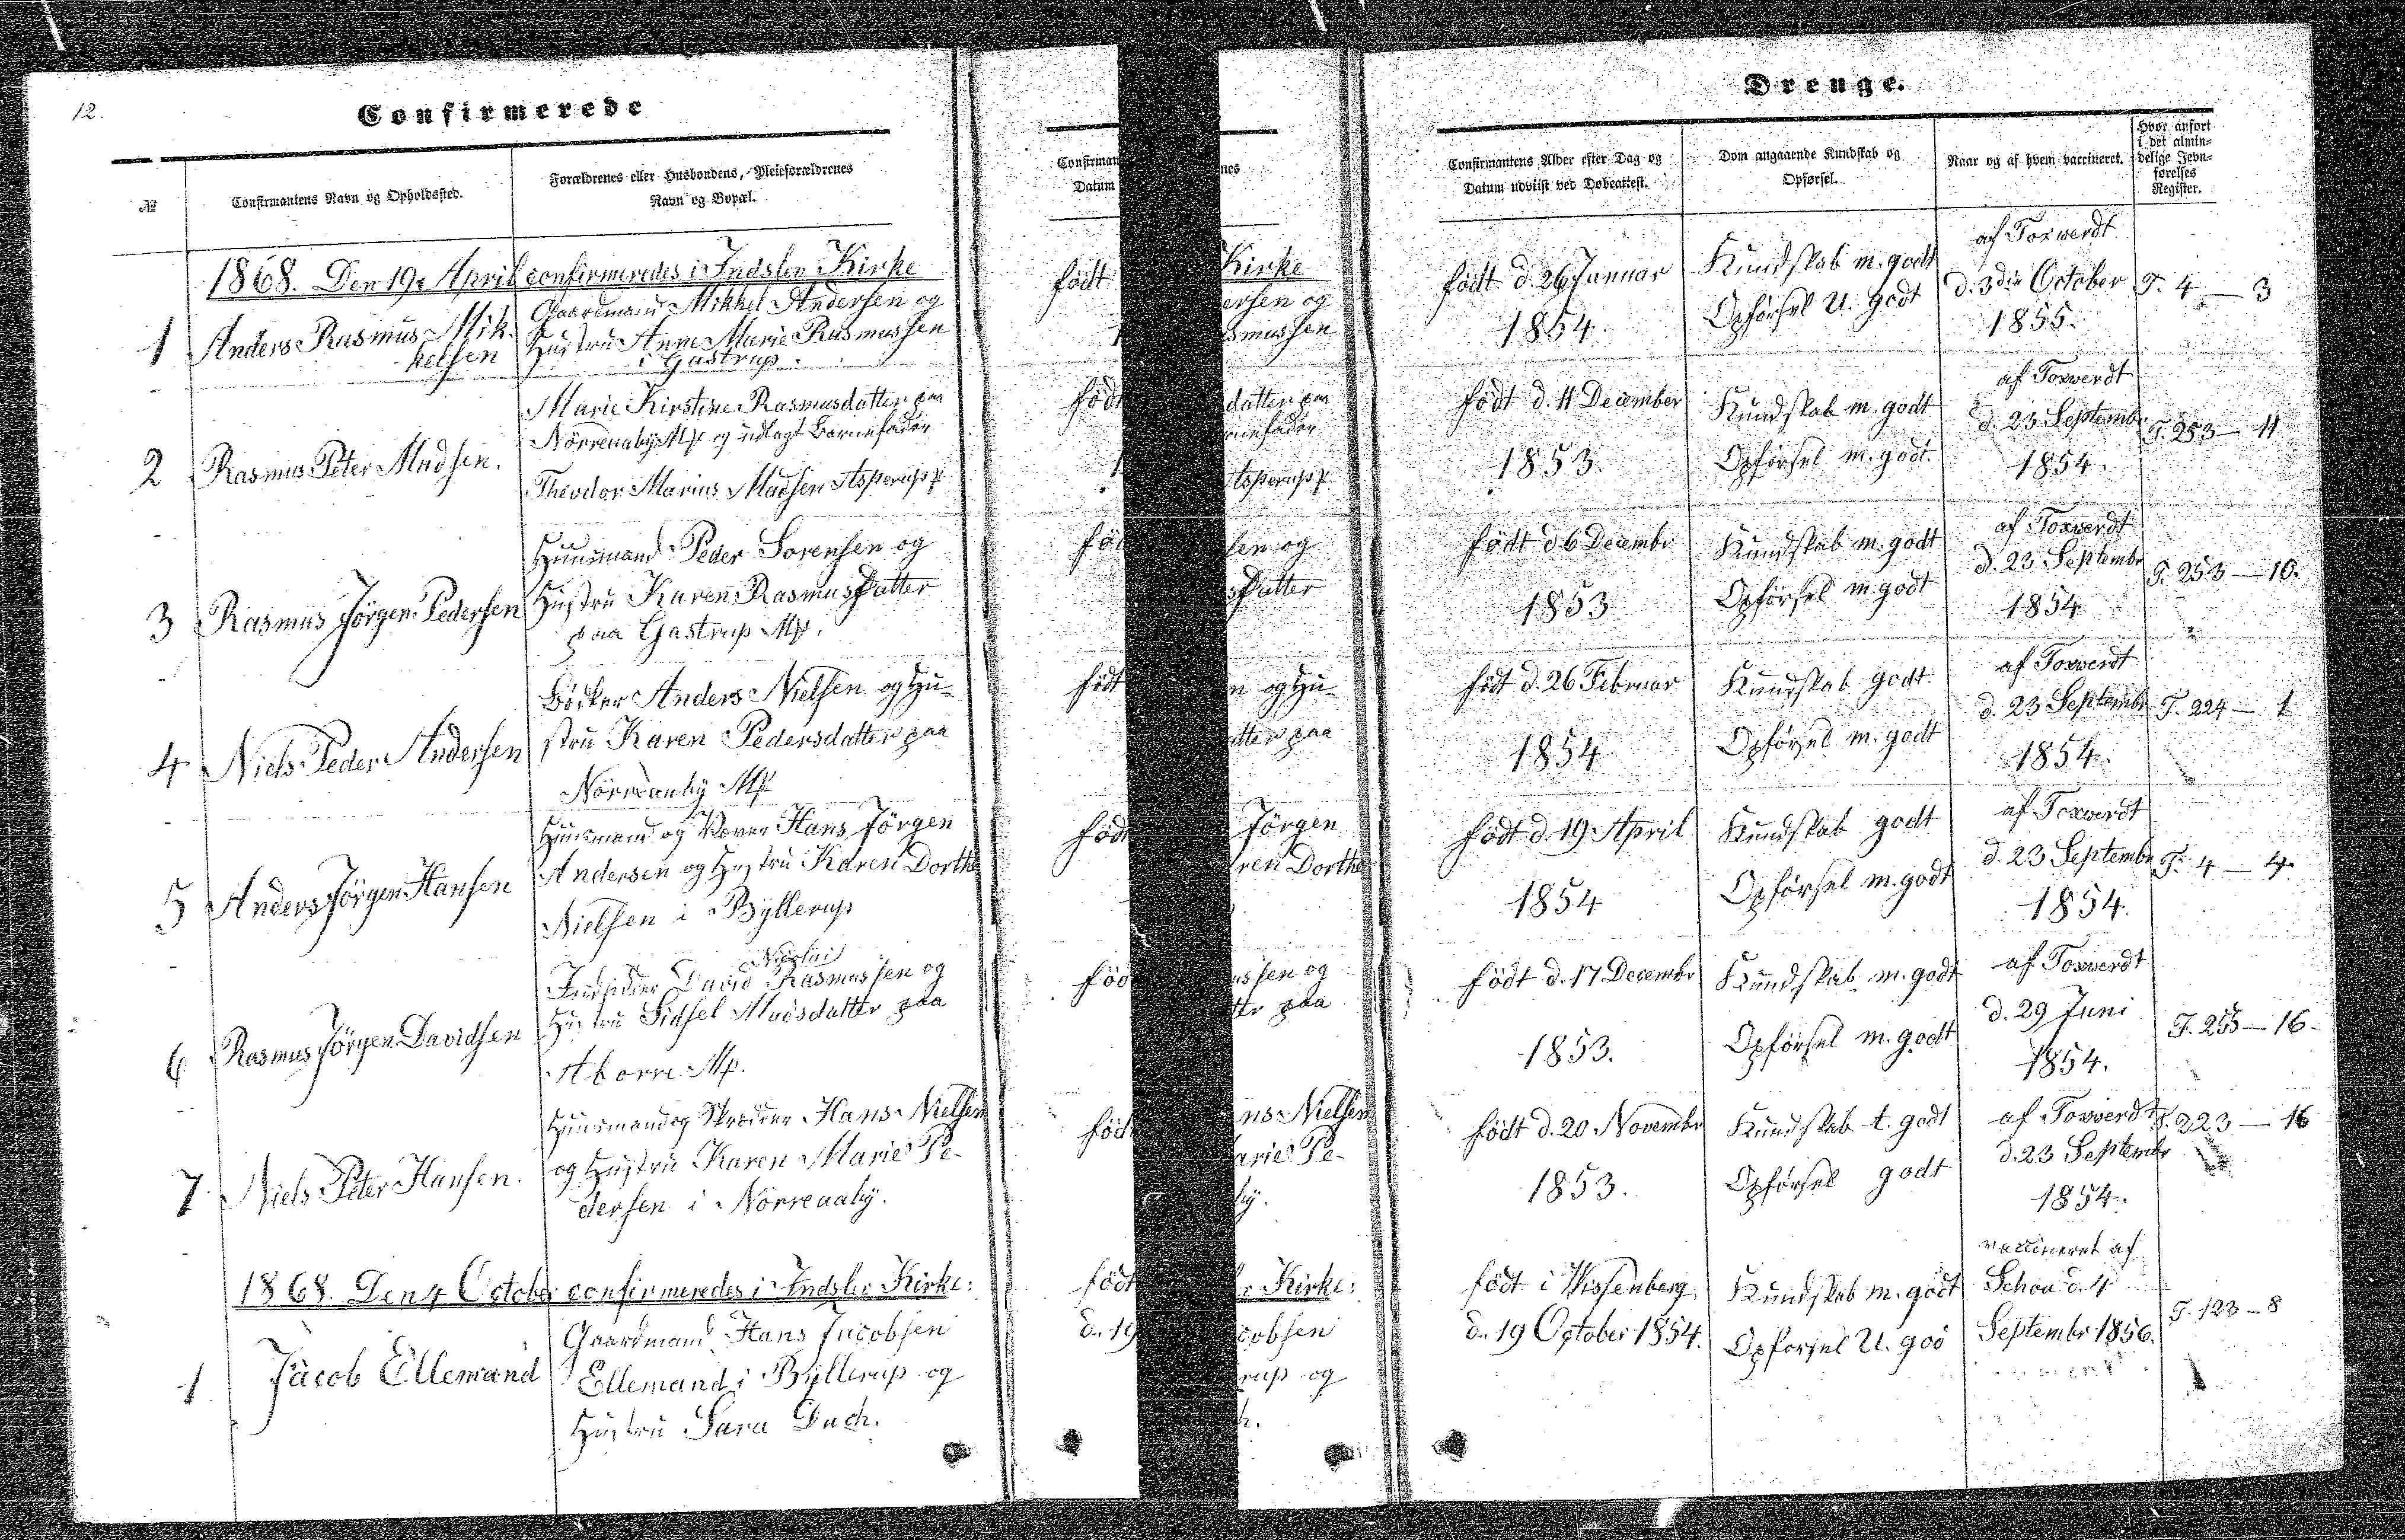 12.
Confirmerede
Drenge.
№
Confirmantens Navn og Opholdssted.
Forældrenes eller Husbondens, Pleieforældrenes
Navn og Bopæl.
Confirmantens Alder efter Dag og
Datum udviist ved Døbeattest.
Dom angaaende Kundskab og
Opførsel.
Naar og af hvem vaccineret.
Hvor anført
i det almin-
delige Jevn-
førelses
Register.
1868. Den 19e April confirmeredes i Indslev Kirke
1
Anders Rasmus Mik-
kelsen
Gaardmand Mikkel Andersen og
Hustru Anne Marie Rasmussen
i Gastrup.
født d. 26 Januar
1854.
Kundskab m. godt
Opførsel U. godt
af Toxwerdt
d. 3die October
1855.
F. 4 — 3
2
Rasmus Peter Madsen.
Marie Kirstine Rasmusdatter paa
Nörreaaby Mk og udlagt Barnefader
Theodor Marius Madsen Asperup
født d. 11 December
1853.
Kundskab m. godt
Opførsel m. godt.
af Toxwerdt
d. 23 Septembr
1854.
F. 253 — 11
3
Rasmus Jörgen Pedersen
Huusmand Peder Sorensen og
Hustru Karen Rasmusdatter
paa Gastrup Mk.
født d 6 Decembr
1853
Kundskab m. godt
Opførsel m. godt
af Toxwerdt
d. 23 Septembr
1854
F. 253 — 10.
4
Niels Peder Andersen
Bödker Anders Nielsen og Hu-
stru Karen Pedersdatter paa
Nörreaaby Mk
født d. 26 Februar
1854
Kundskab godt.
Opførsel m. godt
af Toxwerdt
d. 23 Septembr
1854.
F. 224 — 1
5
Anders Jörgen Hansen
Huusmand og Væver Hans Jörgen
Andersen og Hustru Karen Dorthe
Nielsen i Byllerup
født d. 19 April
1854
Kundskab godt
Opførsel m. godt
af Toxwerdt
d. 23 Septembr
1854.
F. 4 — 4.
6
Rasmus Jörgen Davidsen
Nicolai
Indsidder David Rasmussen og
Hustru Sidsel Madsdatter paa
Aborre Mk.
født d. 17 Decembr
1853.
Kundskab m. godt
Opførsel m. godt
af Toxwerdt
d. 29 Juni
1854.
F. 255 — 16
7
Niels Peter Hansen.
Huusmand og Skrædder Hans Nielsen
og Hustru Karen Marie Pe-
dersen i Nörreaaby.
født d. 20 Novembr
1853.
Kundskab t. godt
Opførsel godt
af Toxwerdt
d. 23 Septembr
1854.
F. 223 — 16
1868. Den 4 October confirmeredes i Indslev Kirke:
1
Jacob Ellemand
Gaardmand Hans Jacobsen
Ellemand i Byllerup og
Hustru Sara Duch.
født i Wissenberg
d. 19 October 1854.
Kundskab m. godt
Opførsel U. god
vaccineret af
Schou d. 4
Septembr 1856.
F. 123 - 8